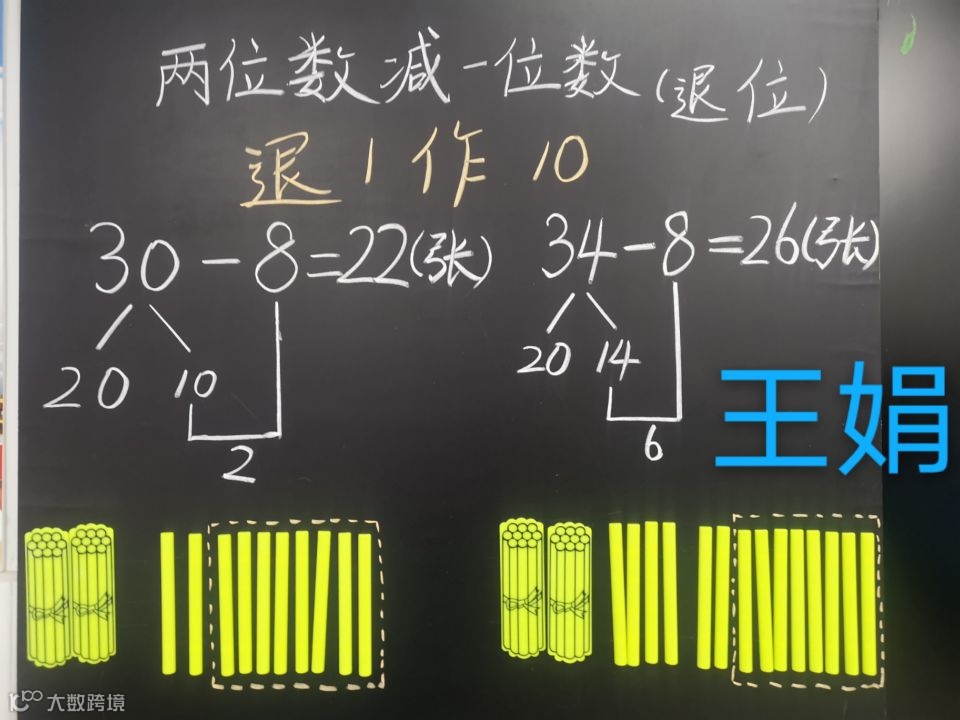 两位数减一位数(退位)
退1作10
30-8=22(张)
20 10
2
34-8=26(张)
20 14
6
王娟
大数跨境